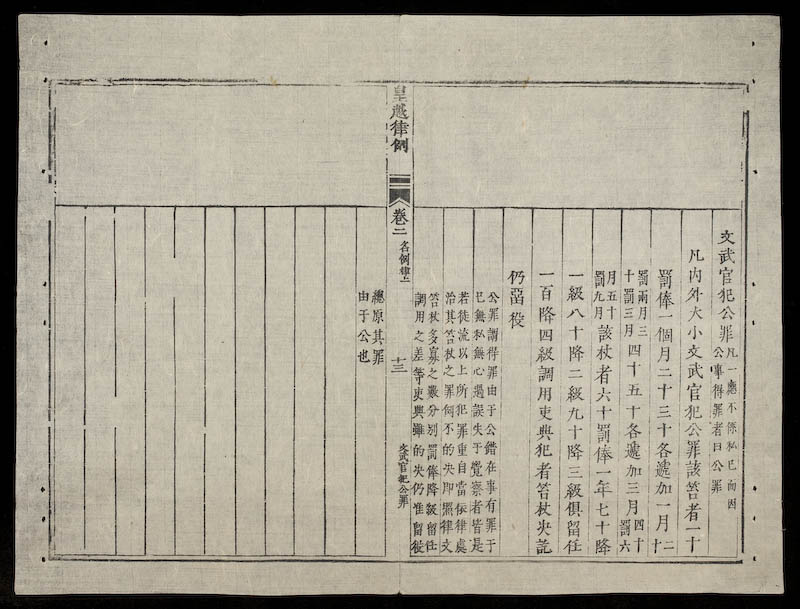 文武官犯公罪
凡一應不係私已而因
公事得罪者曰公罪
凡內外大小文武官犯公罪該笞者一十
罰俸一個月二十三十各遞加一月
二
十
罰兩月三
十罰三月
四十五十各遞加三月
四十
罰六
月五十
罰九月
該杖者六十罰俸一年七十降
一級八十降二級九十降三級俱留任
一百降四級調用吏典犯者笞杖決訖
仍畱役
公罪謂得罪由于公錯在事有罪于
已無私無心過誤失于覺察者皆是
若徒流以上所犯罪重自當依律處
治其笞杖之罪例不的決即照律文
笞杖多寡之數分別罰俸降級留任
調用之差等吏典雖的決仍准留役
皇越律例
卷二
名例律上
十三
文武官犯公罪
總原其罪
由于公也